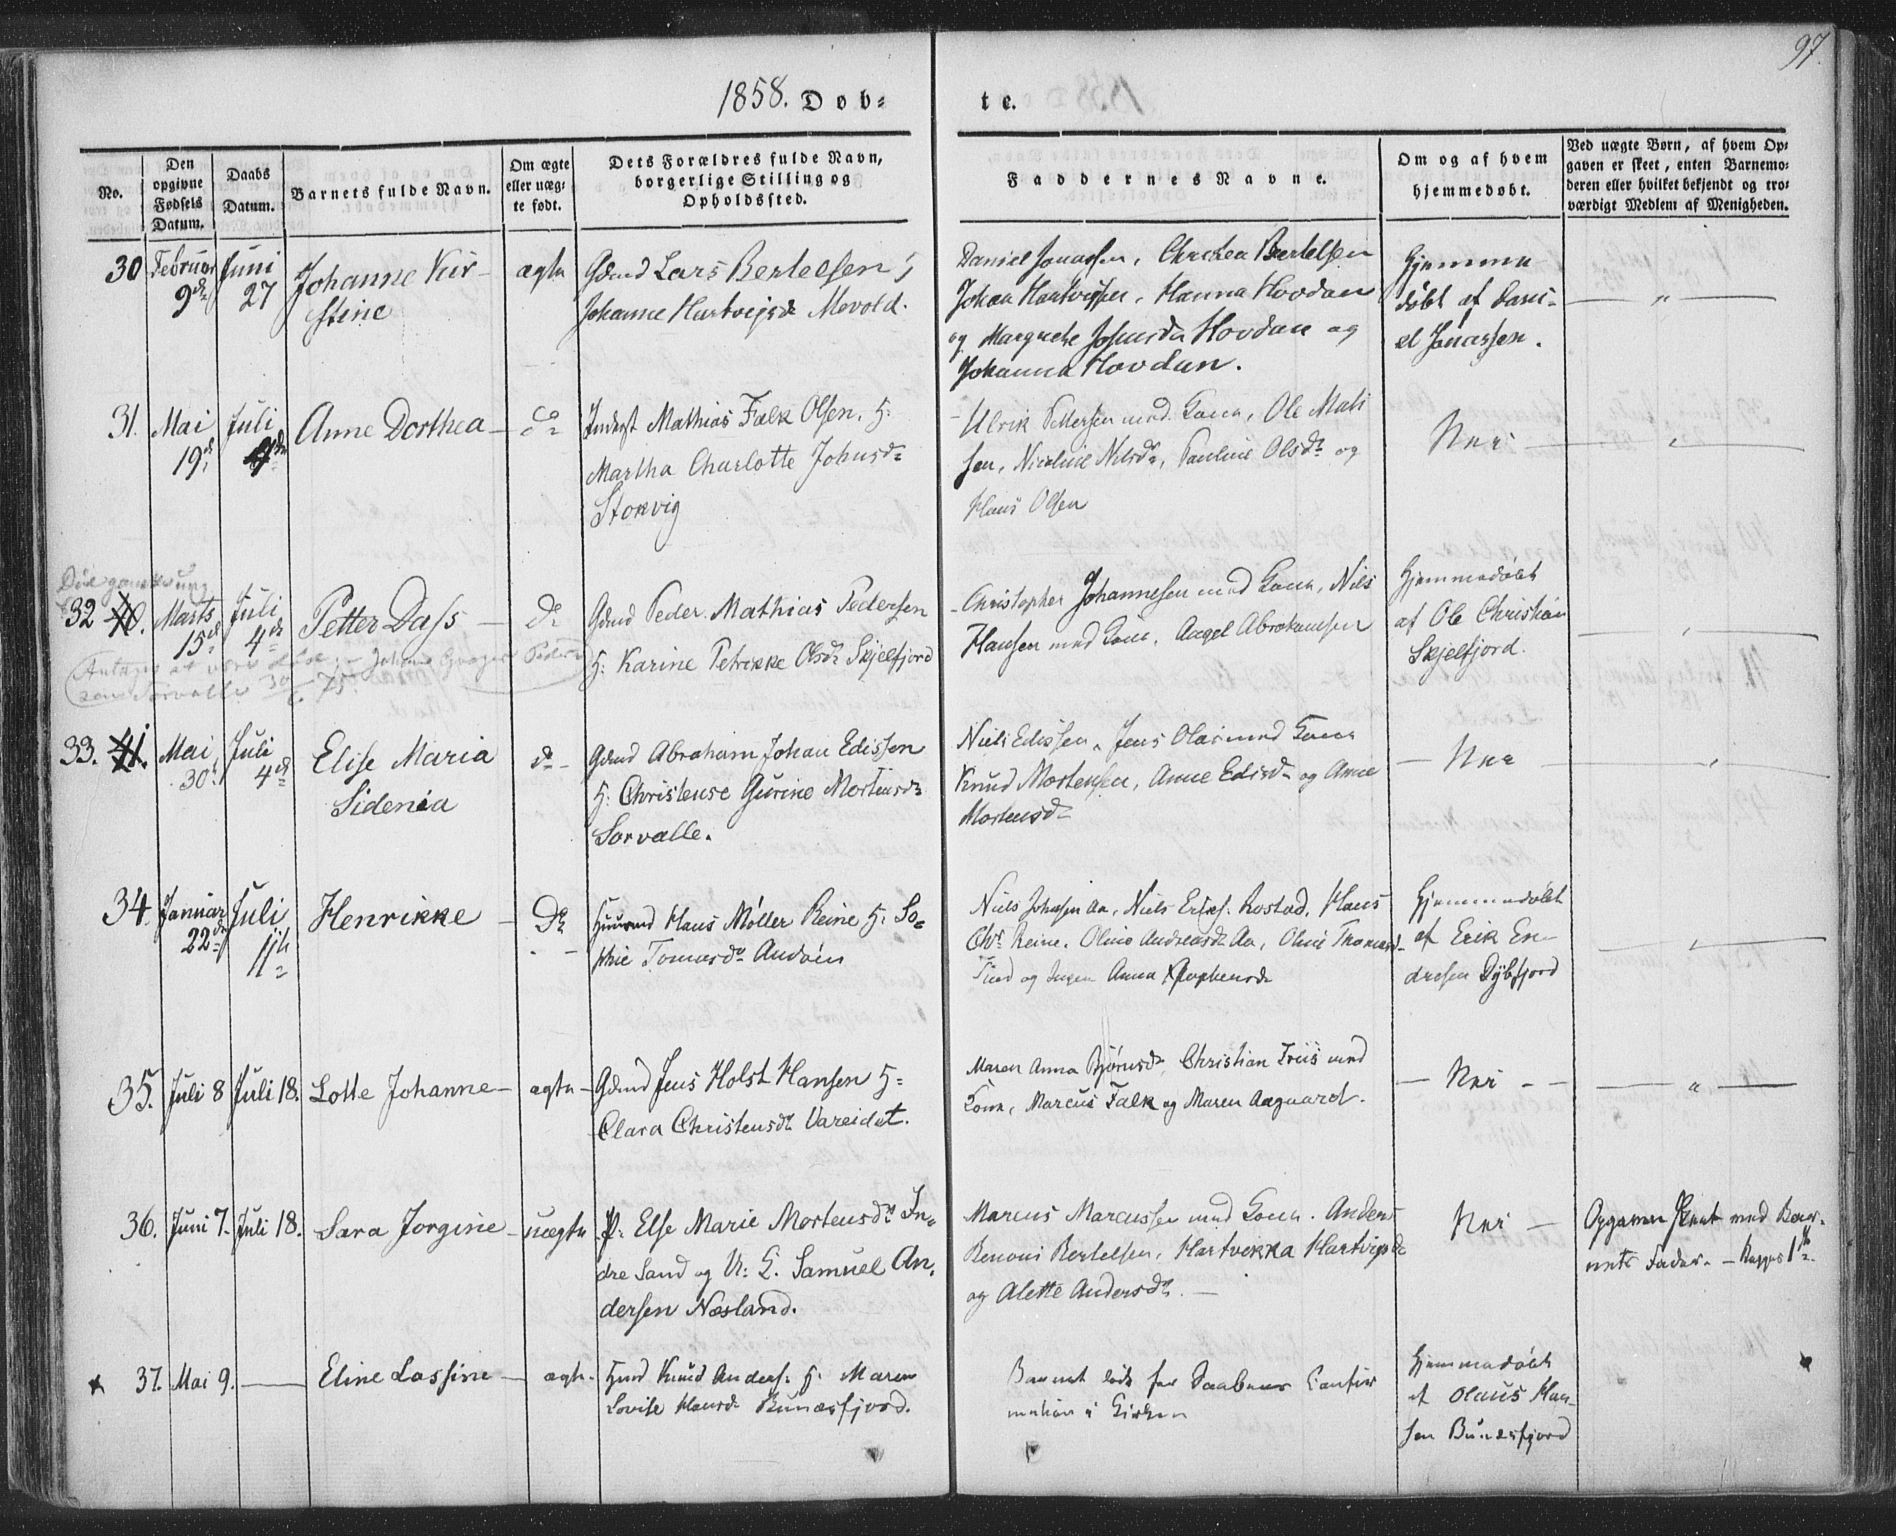 97.
1858. Døb=
te.
No.
Den opgivne Fødsels Datum.
Daabs Datum.
Barnets fulde Navn.
Om ægte eller uæg= te født.
Dets Forældres fulde Navn, borgerlige Stilling og Opholdssted.
Faddernes Navne.
Om og af hvem hjemmedøbt.
Ved uægte Børn, af hvem Op= gaven er skeet, enten Barnemo= deren eller hvilket bekjendt og tro= værdigt Medlem af Menigheden.
30 Februar 9de Juni 27 Johanne Kir- stine ægte
Gdmd Lars Bertelsen &
Johanne Hartvigsd Movold.
Daniel Jonassen, Bertelsen
Johan Hartvigsen, Hanna Hovdan
og Margrethe Hovdan og
Johanna Hovdan.
Hjemme
døbt af Dani-
el Jonassen.
31. Mai 19d Juli Anne Dorthea do
Inderst Mathias Falk Olsen. H:
Martha Charlotte Johnsd
Storvig
Ulrik Pettersen med Kone, Ole Mati
sen, Nicoline Nilsd, Pauline Olsd og
Hans Olsen
Nei
32 40. Marts 15d Juli 4d Petter Dass do
Gdmd Peder Mathias Pedersen
H: Karine Petrikke Olsd Skjelfjord
Christopher Johannesen med Kone, Nils
Hansen med Kone, Angel Abrahamsen
Hjemmedøbt
af Ole Christian
Skjelfjord.
33. 41. Mai 30 Juli 4d Elise Maria Sidenia do
Gdmd Abraham Johan Edissen
H: Christense Gurine Mortensd
Sorvalle.
Niels Edissen, Jens Olai med Kone
Knud Mortensen, Anne Edisd og Anne
Mortensd
Nei
34. Januar 22d Juli 11te Henrikke Do
Huusmd Hans Møller Reine H: So=
phie Tomasd Andøen
Niels Johnsen Aa, Niels Rostad, Hans
Chr Reine, Oline Andreasd Aa, Oline Thomasd
og Anna
Hjemmedøbt
af Erik En-
dresen Dybfjord
35. Juli 8 Juli 18. Lotte Johanne ægte
Gdmd Jens Holst Hansen H:
Clara Christensd Vareidet.
Maren Anna Bjørnsd, Christian Friis med
Kone, Marcus Falk og Maren Aagaard.
Nei
36. Juni 7. Juli 18. Sara Jorgine uægte
P: Else Marie Mortensd In=
dre Sand og U: K. Samuel An=
dersen Næsland.
Marcus Marcussen med Kone. Anders
Benoni Bertelsen, Hartvikka Hartvigsd
og Alette Andersd.
Nei
Opgaven skeet med Bar-
nets Fader.
37. Mai 9. Eline Lassine ægte
Hmd Knud Anders. H. Maren
Lovise Hansd Bunæsfjord.
Barnet døde før Daabens Confir
mation i Kirken
Hjemmedøbt
af Olaus Han-
sen Bunæsfjord